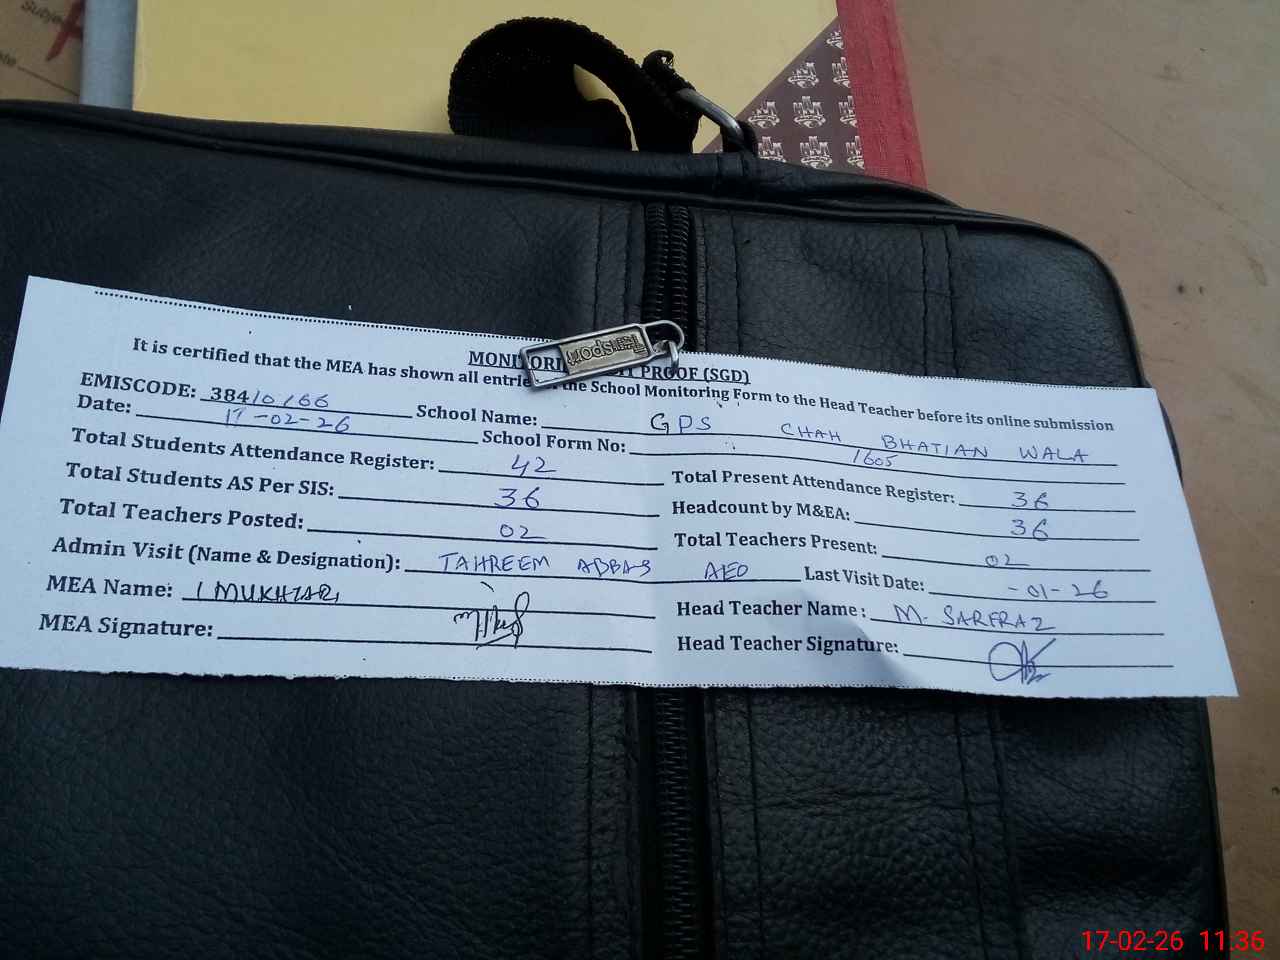 Subje
ate
MONITORI PROOF (SGD)
It is certified that the MEA has shown all entrie the School Monitoring Form to the Head Teacher before its online submission
EMISCODE: 38410166 School Name: GPS CHAH BHATIAN WALA
Date: 17-02-26 School Form No: 1605
Total Students Attendance Register: 42 Total Present Attendance Register: 36
Total Students AS Per SIS: 36 Headcount by M&EA: 36
Total Teachers Posted: 02 Total Teachers Present: 02
Admin Visit (Name & Designation): TAHREEM ABBAS AEO Last Visit Date: -01-26
MEA Name: MUKHTAR Head Teacher Name: M. SARFRAZ
MEA Signature: Head Teacher Signature:
17-02-26 11.36